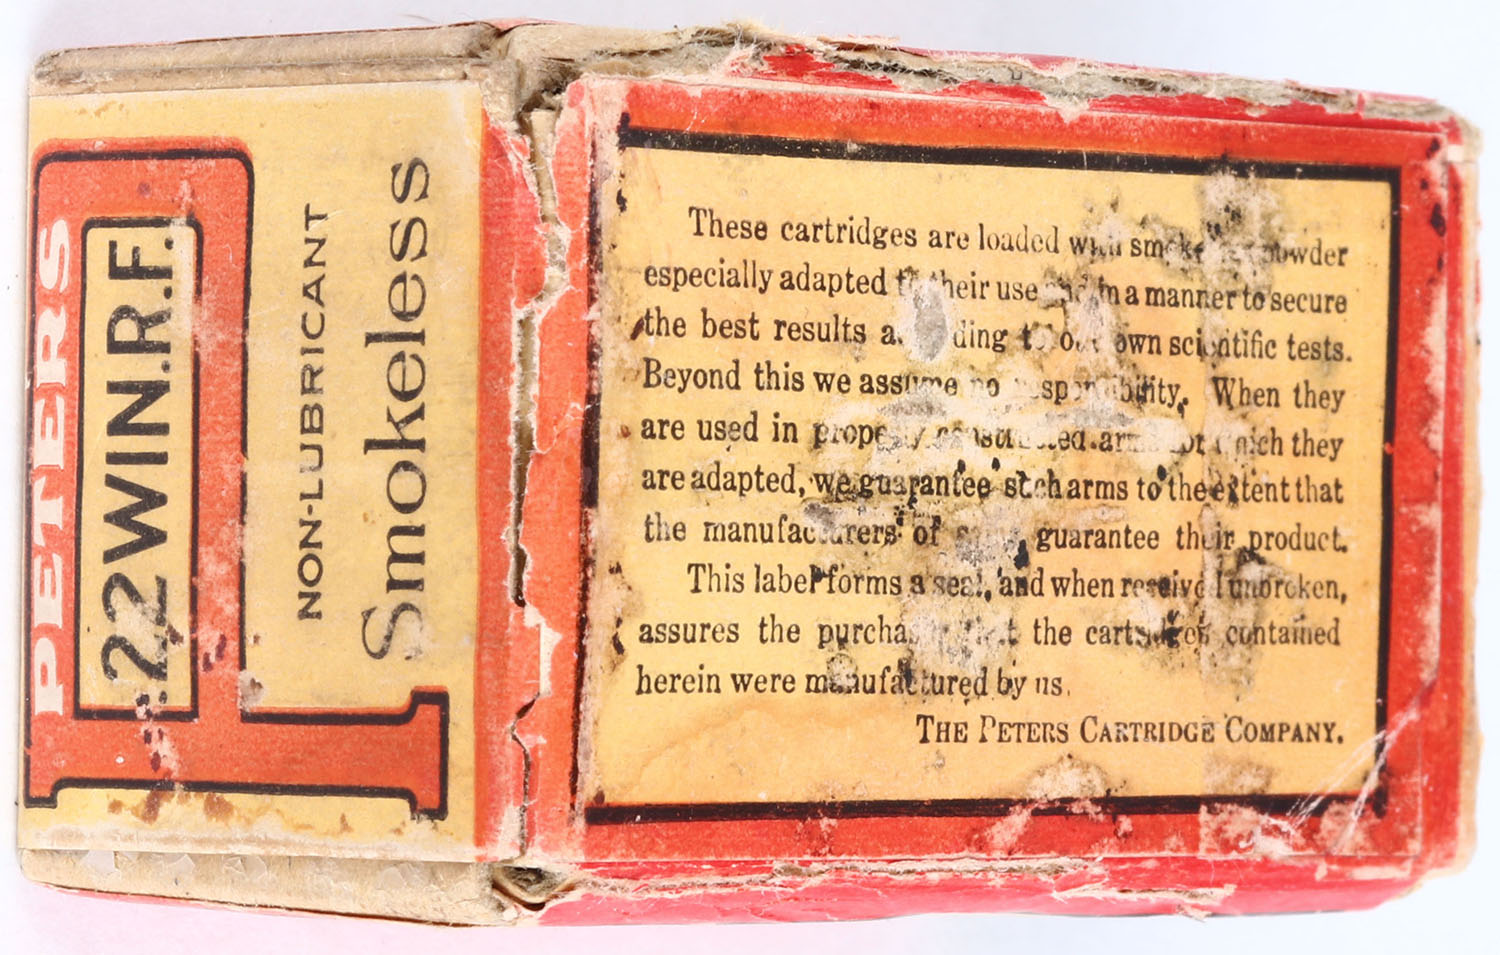 PETERS
.22 WIN.R.F.
NON-LUBRICANT
Smokeless
These cartridges are loaded with smokeless powder
especially adapted to their use and in a manner to secure
the best results according to our own scientific tests.
Beyond this we assume no responsibility. When they
are used in properly constructed arms for which they
are adapted, we guarantee such arms to the extent that
the manufacturers of same guarantee their product.
This label forms a seal, and when received unbroken,
assures the purchaser that the cartridges contained
herein were manufactured by us.
THE PETERS CARTRIDGE COMPANY.